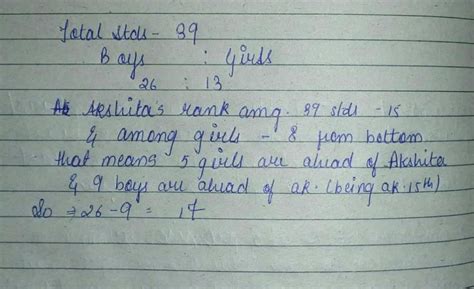 Total Stds - 39
Boys : Girls
26 : 13
Akshita's rank amg. 39 stds - 15
& among girls - 8 from bottom
that means 5 girls are ahead of Akshita
& 9 boys are ahead of ak. (being ak. 15th)
So ⇒ 26 - 9 = 17